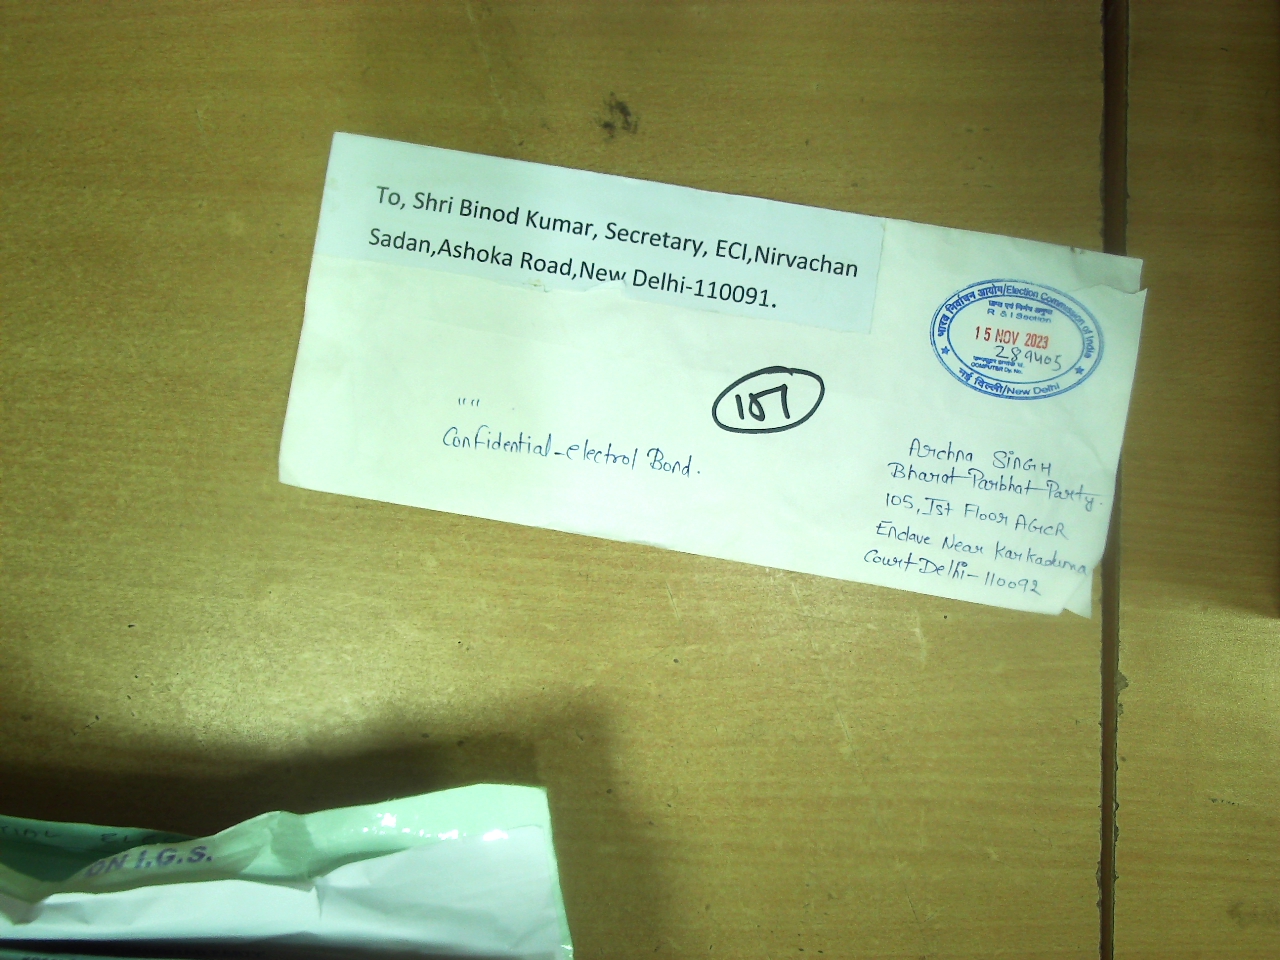 To, Shri Binod Kumar, Secretary, ECI,Nirvachan
Sadan,Ashoka Road,New Delhi-110091.
भारत निर्वाचन आयोग/Election Commission of India
R & I Section
15 NOV 2023
289405
COMPUTER Dy. No.
नई दिल्ली/New Delhi
107
""
Confidential-electrol Bond.
Archna SinGH
Bharat Parbhat Party.
105, Ist Floor AGCR
Enclave Near Karkaduma
Court Delhi-110092
ON I.G.S.